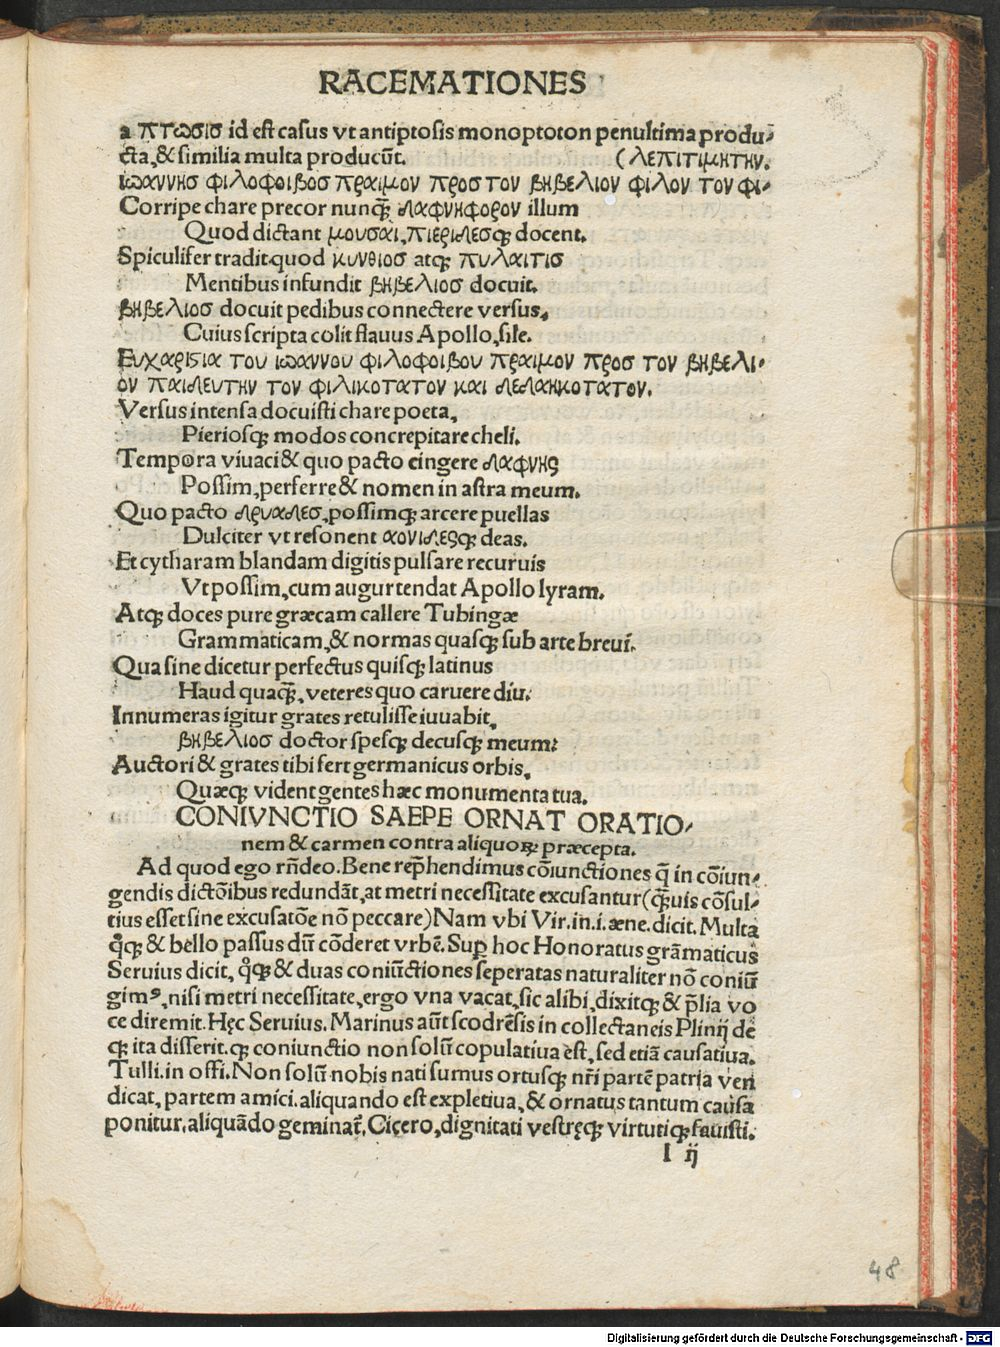 RACEMATIONES
a πτωσισ id est casus vt antiptosis monoptoton penultima produ-
cta, & similia multa producūt. (λεπιτιμητην.
ιωαννησ φιλοφοιβοσ πραιμον προσ τον βηβελιον φιλον τον φι-
Corripe chare precor nunꝗ̄ δαφνηφορον illum
Quod dictant μουσαι, πιεριδεσꝗ docent.
Spiculifer tradit quod κυνθιοσ atꝗ πυλαιτισ
Mentibus infundit βηβελιοσ docuit.
βηβελιοσ docuit pedibus connectere versus,
Cuius scripta colit flauus Apollo, sile.
Ευχαριϛια του ιωαννου φιλοφοιβου πραιμον προσ τον βηβελι-
ον παιδευτην τον φιλικοτατον και δεδαηκοτατον.
Versus intensa docuisti chare poeta,
Pieriosꝗ modos concrepitare cheli.
Tempora viuaci & quo pacto cingere δαφνης
Possim, perferre & nomen in astra meum.
Quo pacto δρυαδεσ, possimꝗ arcere puellas
Dulciter vt resonent αονιδεςꝗ deas.
Et cytharam blandam digitis pulsare recuruis
Vt possim, cum augur tendat Apollo lyram.
Atꝗ doces pure græcam callere Tubingæ
Grammaticam, & normas quasꝗ sub arte breui.
Qua sine dicetur perfectus quisꝗ latinus
Haud quaꝗ̄, veteres quo caruere diu.
Innumeras igitur grates retulisse iuuabit,
βηβελιοσ doctor spesꝗ decusꝗ meum:
Auctori & grates tibi fert germanicus orbis,
Quæꝗ vident gentes hæc monumenta tua.
CONIVNCTIO SAEPE ORNAT ORATIO-
nem & carmen contra aliquoꝝ præcepta.
Ad quod ego rn̄deo. Bene rep̄hendimus cōiunctiones q̄ in cōiun-
gendis dictōibus redundāt, at metri necessitate excusantur (ꝗ̄uis cōsul-
tius esset sine excusatōe nō peccare) Nam vbi Vir. in. i. æne. dicit. Multa
qͦꝗ & bello passus dū cōderet vrbē. Suꝑ hoc Honoratus grāmaticus
Seruius dicit, qͦꝗ & duas coniūctiones seperatas naturaliter nō coniū
gimꝰ, nisi metri necessitate, ergo vna vacat, sic alibi, dixitꝗ & p̄lia vo
ce diremit. Hęc Seruius. Marinus aūt scodrēsis in collectaneis Plinij de
ꝗ ita disserit. ꝗ coniunctio non solū copulatiua est, sed etiā causatiua.
Tulli. in offi. Non solū nobis nati sumus ortusꝗ nr̄i partē patria ven
dicat, partem amici. aliquando est expletiua, & ornatus tantum causa
ponitur, aliquādo geminat̄, Cicero, dignitati vestręꝗ virtutiꝗ fauisti.
I ij
48
Digitalisierung gefördert durch die Deutsche Forschungsgemeinschaft - DFG